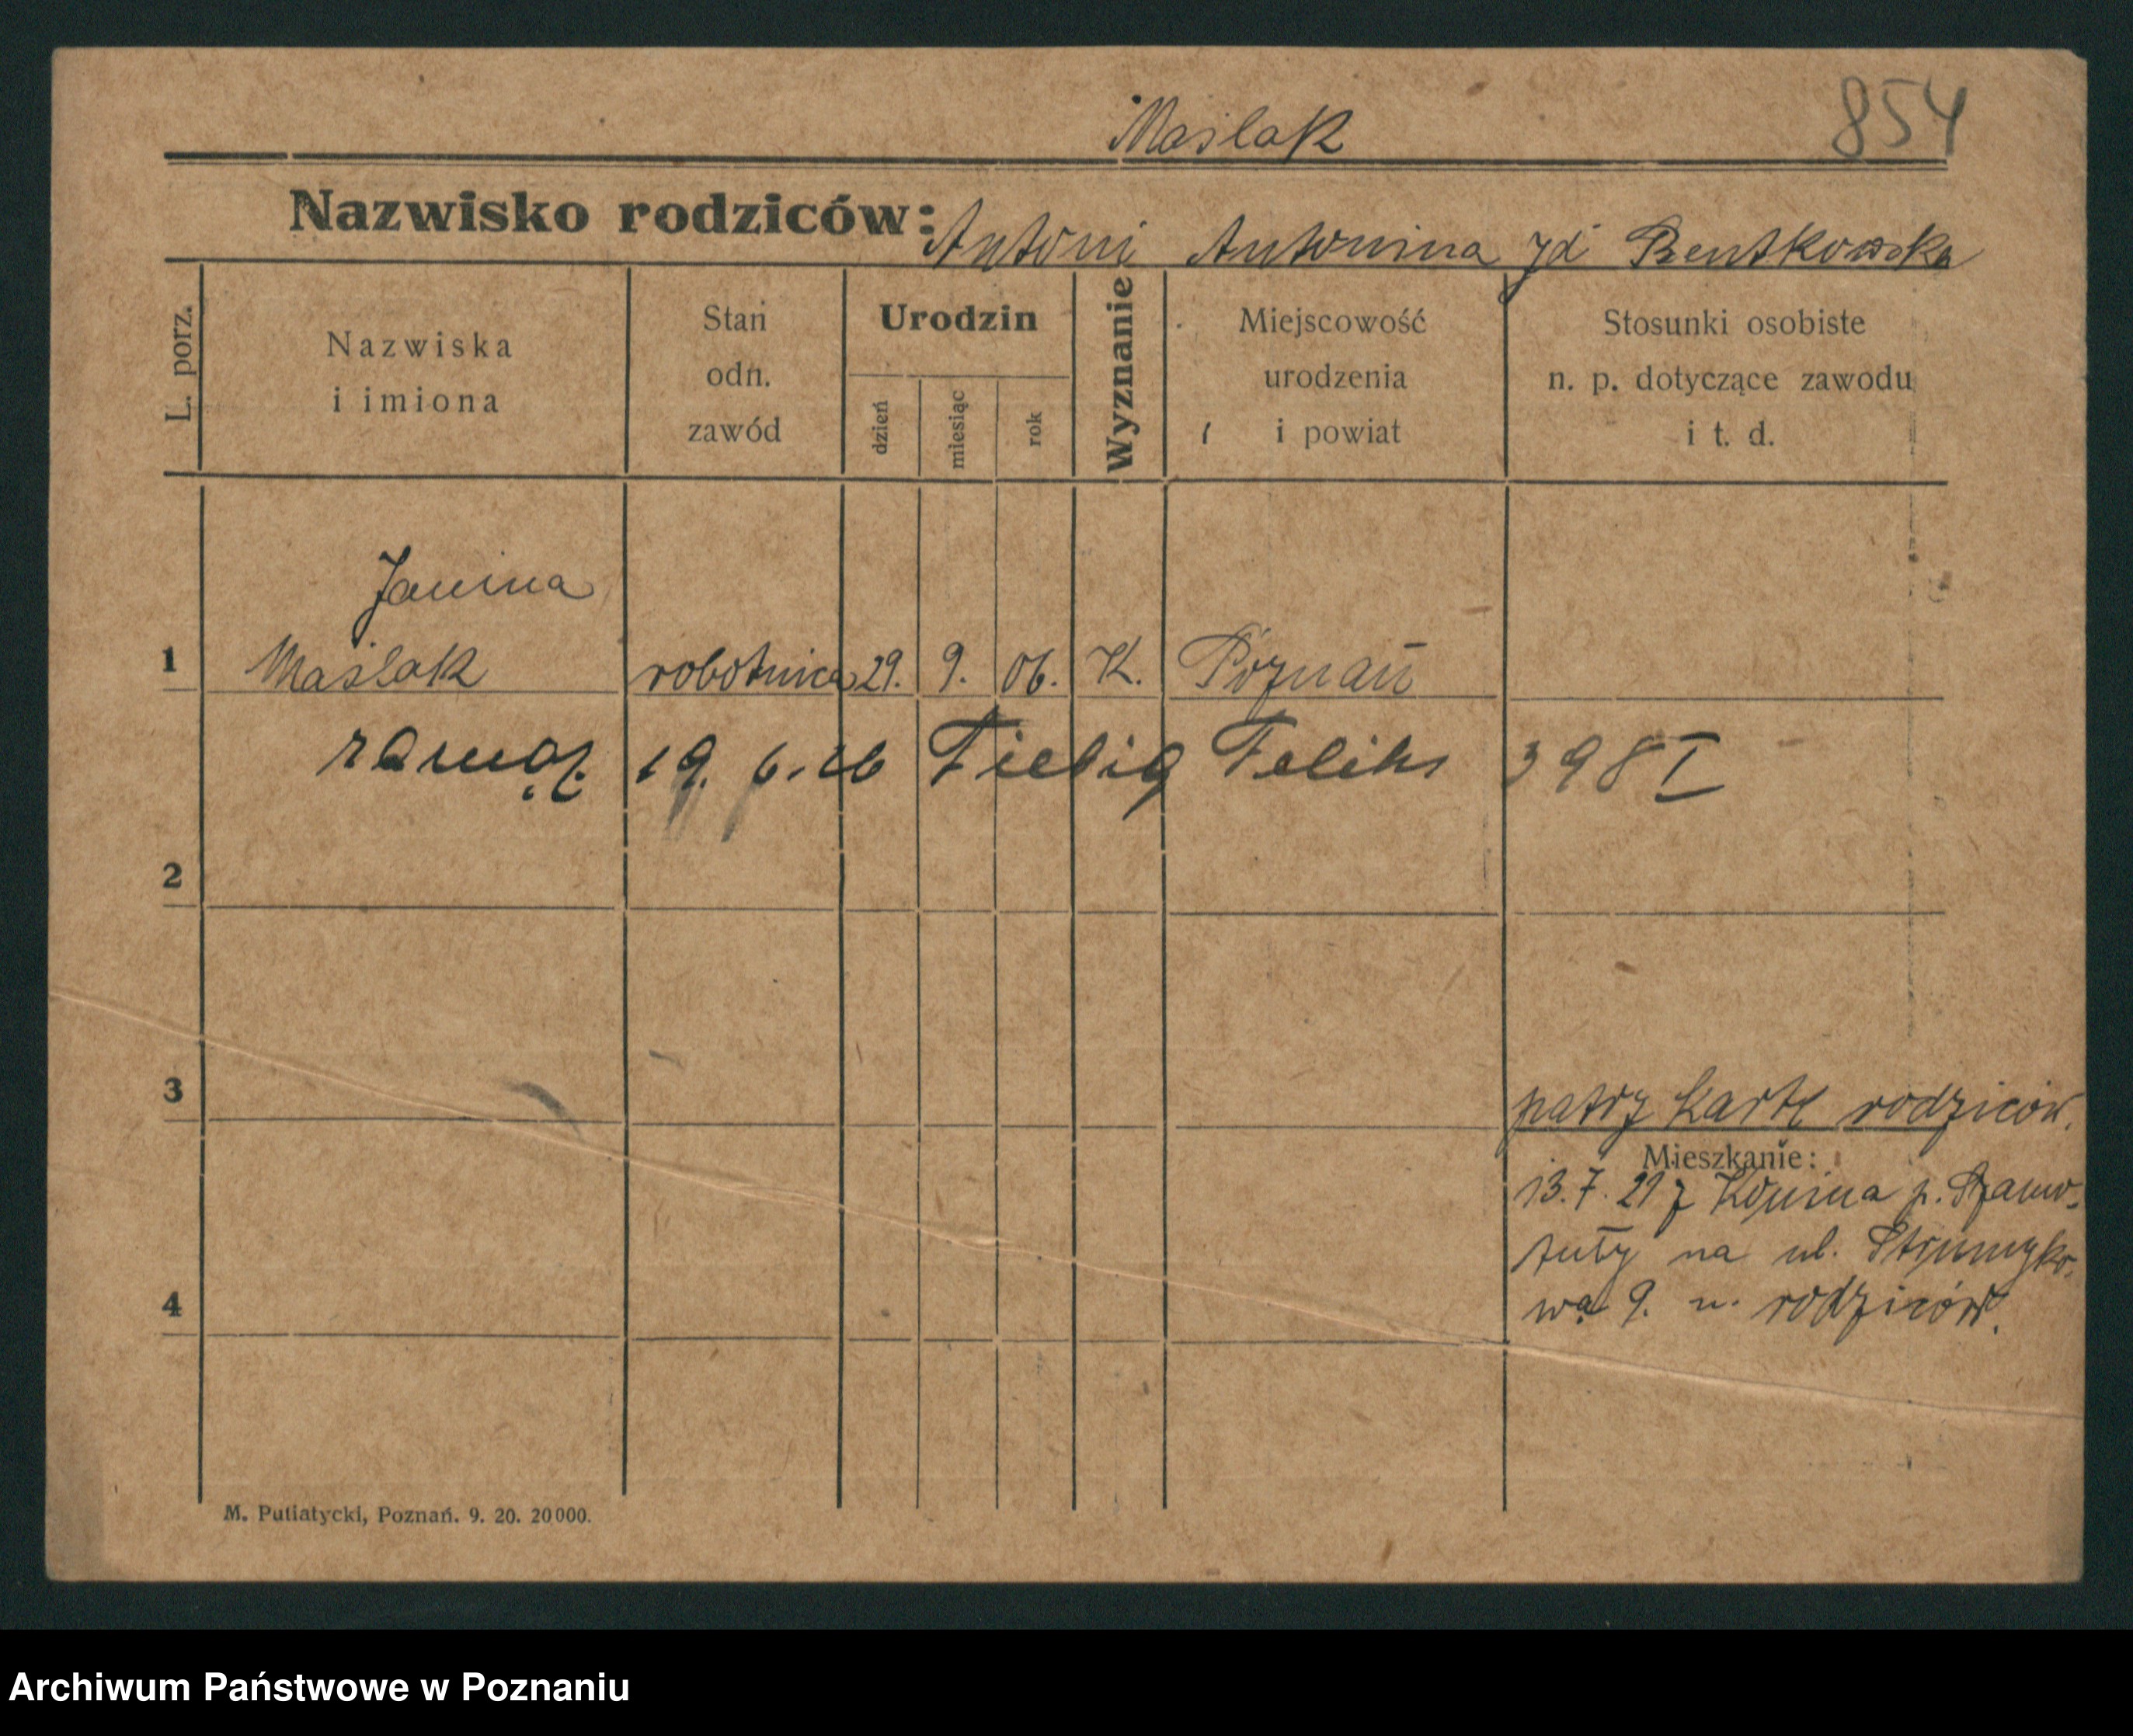 Maślak
854
Nazwisko rodziców: Antoni Antonina zd Bentkowska
L. porz.
Nazwiska
i imiona
Stan
odn.
zawód
Urodzin
dzień
miesiąc
rok
Wyznanie
Miejscowość
urodzenia
i powiat
Stosunki osobiste
n. p. dotyczące zawodu
i t. d.
Janina
1 Maślak robotnica 29. 9. 06. K. Poznań
zamęż. 19. 6. 26 Fiebig Feliks 398 I
2
3
patrz kartę rodziców.
Mieszkanie:
13.7.21 z Konina p. Szamo-
tuły na ul. Strumyko-
4
wa 9. u. rodziców.
M. Putiatycki, Poznań. 9. 20. 20000.
Archiwum Państwowe w Poznaniu